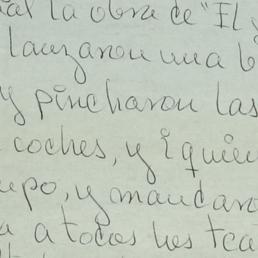 la obra de "El
lanzaron una b
y pincharon las
coches, y i quien
upo, y mandaro
a a todos los tea